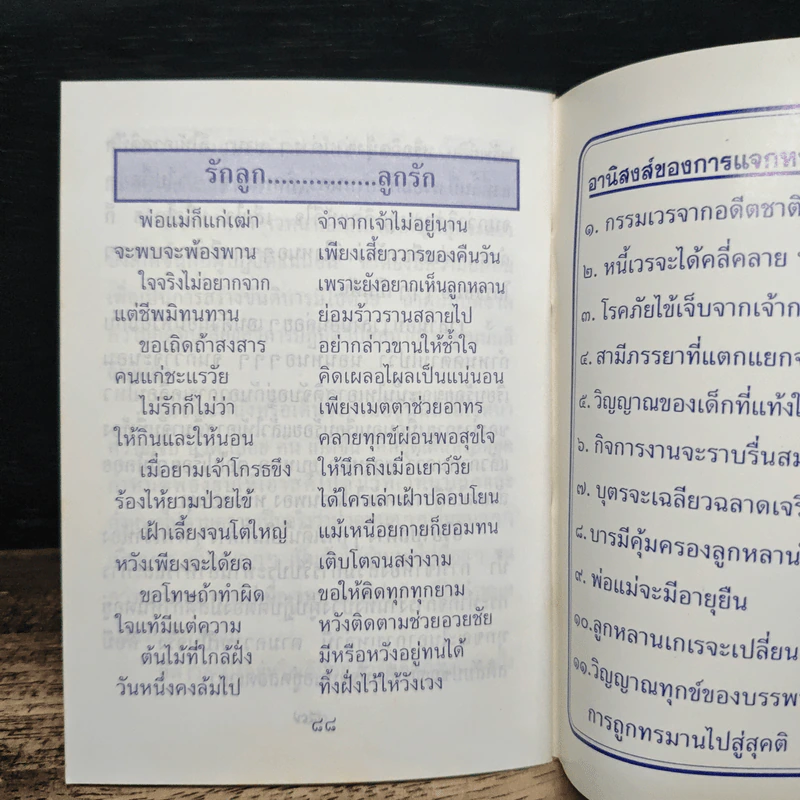 รักลูก................ลูกรัก
พ่อแม่ก็แก่เฒ่า จำจากเจ้าไม่อยู่นาน
จะพบจะพ้องพาน เพียงเสี้ยววารของคืนวัน
ใจจริงไม่อยากจาก เพราะยังอยากเห็นลูกหลาน
แต่ชีพมิทนทาน ย่อมร้าวรานสลายไป
ขอเถิดถ้าสงสาร อย่ากล่าวขานให้ช้ำใจ
คนแก่ชะแรวัย คิดเผลอไผลเป็นแน่นอน
ไม่รักก็ไม่ว่า เพียงเมตตาช่วยอาทร
ให้กินและให้นอน คลายทุกข์ผ่อนพอสุขใจ
เมื่อยามเจ้าโกรธขึง ให้นึกถึงเมื่อเยาว์วัย
ร้องไห้ยามป่วยไข้ ได้ใครเล่าเฝ้าปลอบโยน
เฝ้าเลี้ยงจนโตใหญ่ แม้เหนื่อยกายก็ยอมทน
หวังเพียงจะได้ยล เติบโตจนสง่างาม
ขอโทษถ้าทำผิด ขอให้คิดทุกทุกยาม
ใจแท้มีแต่ความ หวังติดตามช่วยอวยชัย
ต้นไม้ที่ใกล้ฝั่ง มีหรือหวังอยู่ทนได้
วันหนึ่งคงล้มไป ทิ้งฝั่งไว้ให้วังเวง
๘๘
อานิสงส์ของการแจก
๑. กรรมเวรจากอดีตชาติ
๒. หนี้เวรจะได้คลี่คลาย
๓. โรคภัยไข้เจ็บจากเจ้า
๔. สามีภรรยาที่แตกแยก
๕. วิญญาณของเด็กที่แท้ง
๖. กิจการงานจะราบรื่น
๗. บุตรจะเฉลียวฉลาด
๘. บารมีคุ้มครองลูกหลาน
๙. พ่อแม่จะมีอายุยืน
๑๐. ลูกหลานเกเรจะเปลี่ยน
๑๑. วิญญาณทุกข์ของบรรพ
การถูกทรมานไปสู่สุคติ